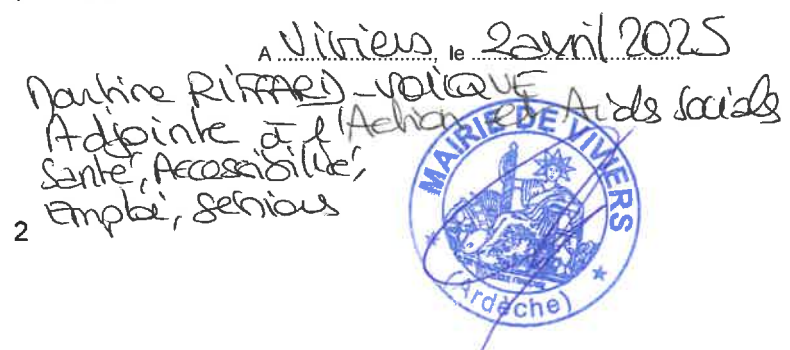 A Viviers, le 2 avril 2025
Martine RIFFARD-VOILQUE
Adjointe à l'Action et Aides Sociales
Santé, Accessibilité,
Emploi, Séniors
2
MAIRIE DE VIVIERS
(Ardèche)